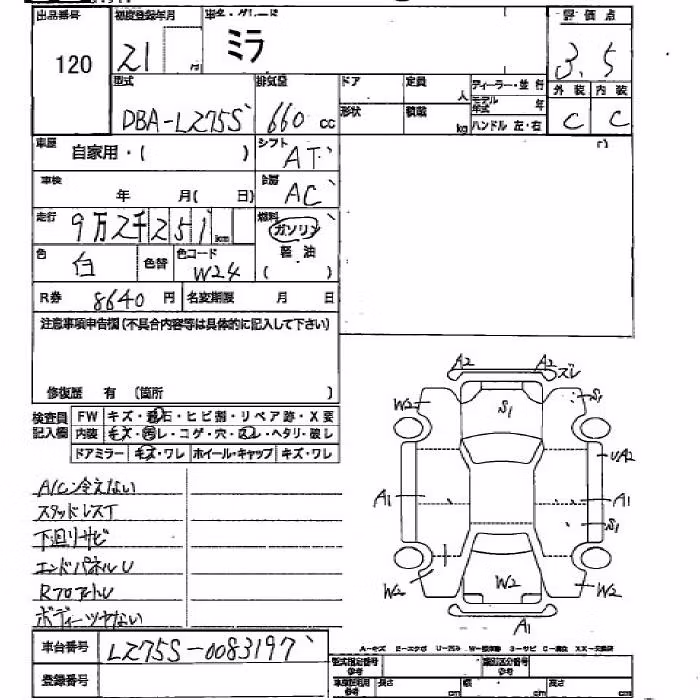 出品番号 初度登録年月 車名・グレード 評価点
120 21 月 ミラ 3.5
型式 排気量 ドア 定員 人 ディーラー・並行 外装 内装
DBA-LZ75S 660 cc 形状 積載 kg モデル年式 年 ハンドル 左・右 C C
車歴 自家用・( ) シフト AT
車検 年 月( 日) 冷房 AC
走行 9万2千251 km 燃料 ガソリン
軽油
( )
色 白 色替 色コード W24
R券 8640 円 名変期限 月 日
注意事項申告欄(不具合内容等は具体的に記入して下さい)
修復歴 有 (箇所 )
検査員記入欄 FW キズ・飛石・ヒビ割・リペア跡・X要
内装 キズ・汚れ・コゲ・穴・ ・ヘタリ・破レ
ドアミラー キズ・ワレ ホイール・キャップ キズ・ワレ
A/C冷えない
スタッドレスT
下廻りサビ
エンドパネルU
RフロアトU
ボディーツヤない
車台番号 LZ75S-0083197
登録番号
A2 A2 ズレ
W2 S1 S1
UA2
A1 A1
S1
W2 W2 W2
A1
型式指定番号 参考 類別区分番号 参考
車庫証明用 参考 長さ cm 幅 cm 高さ cm